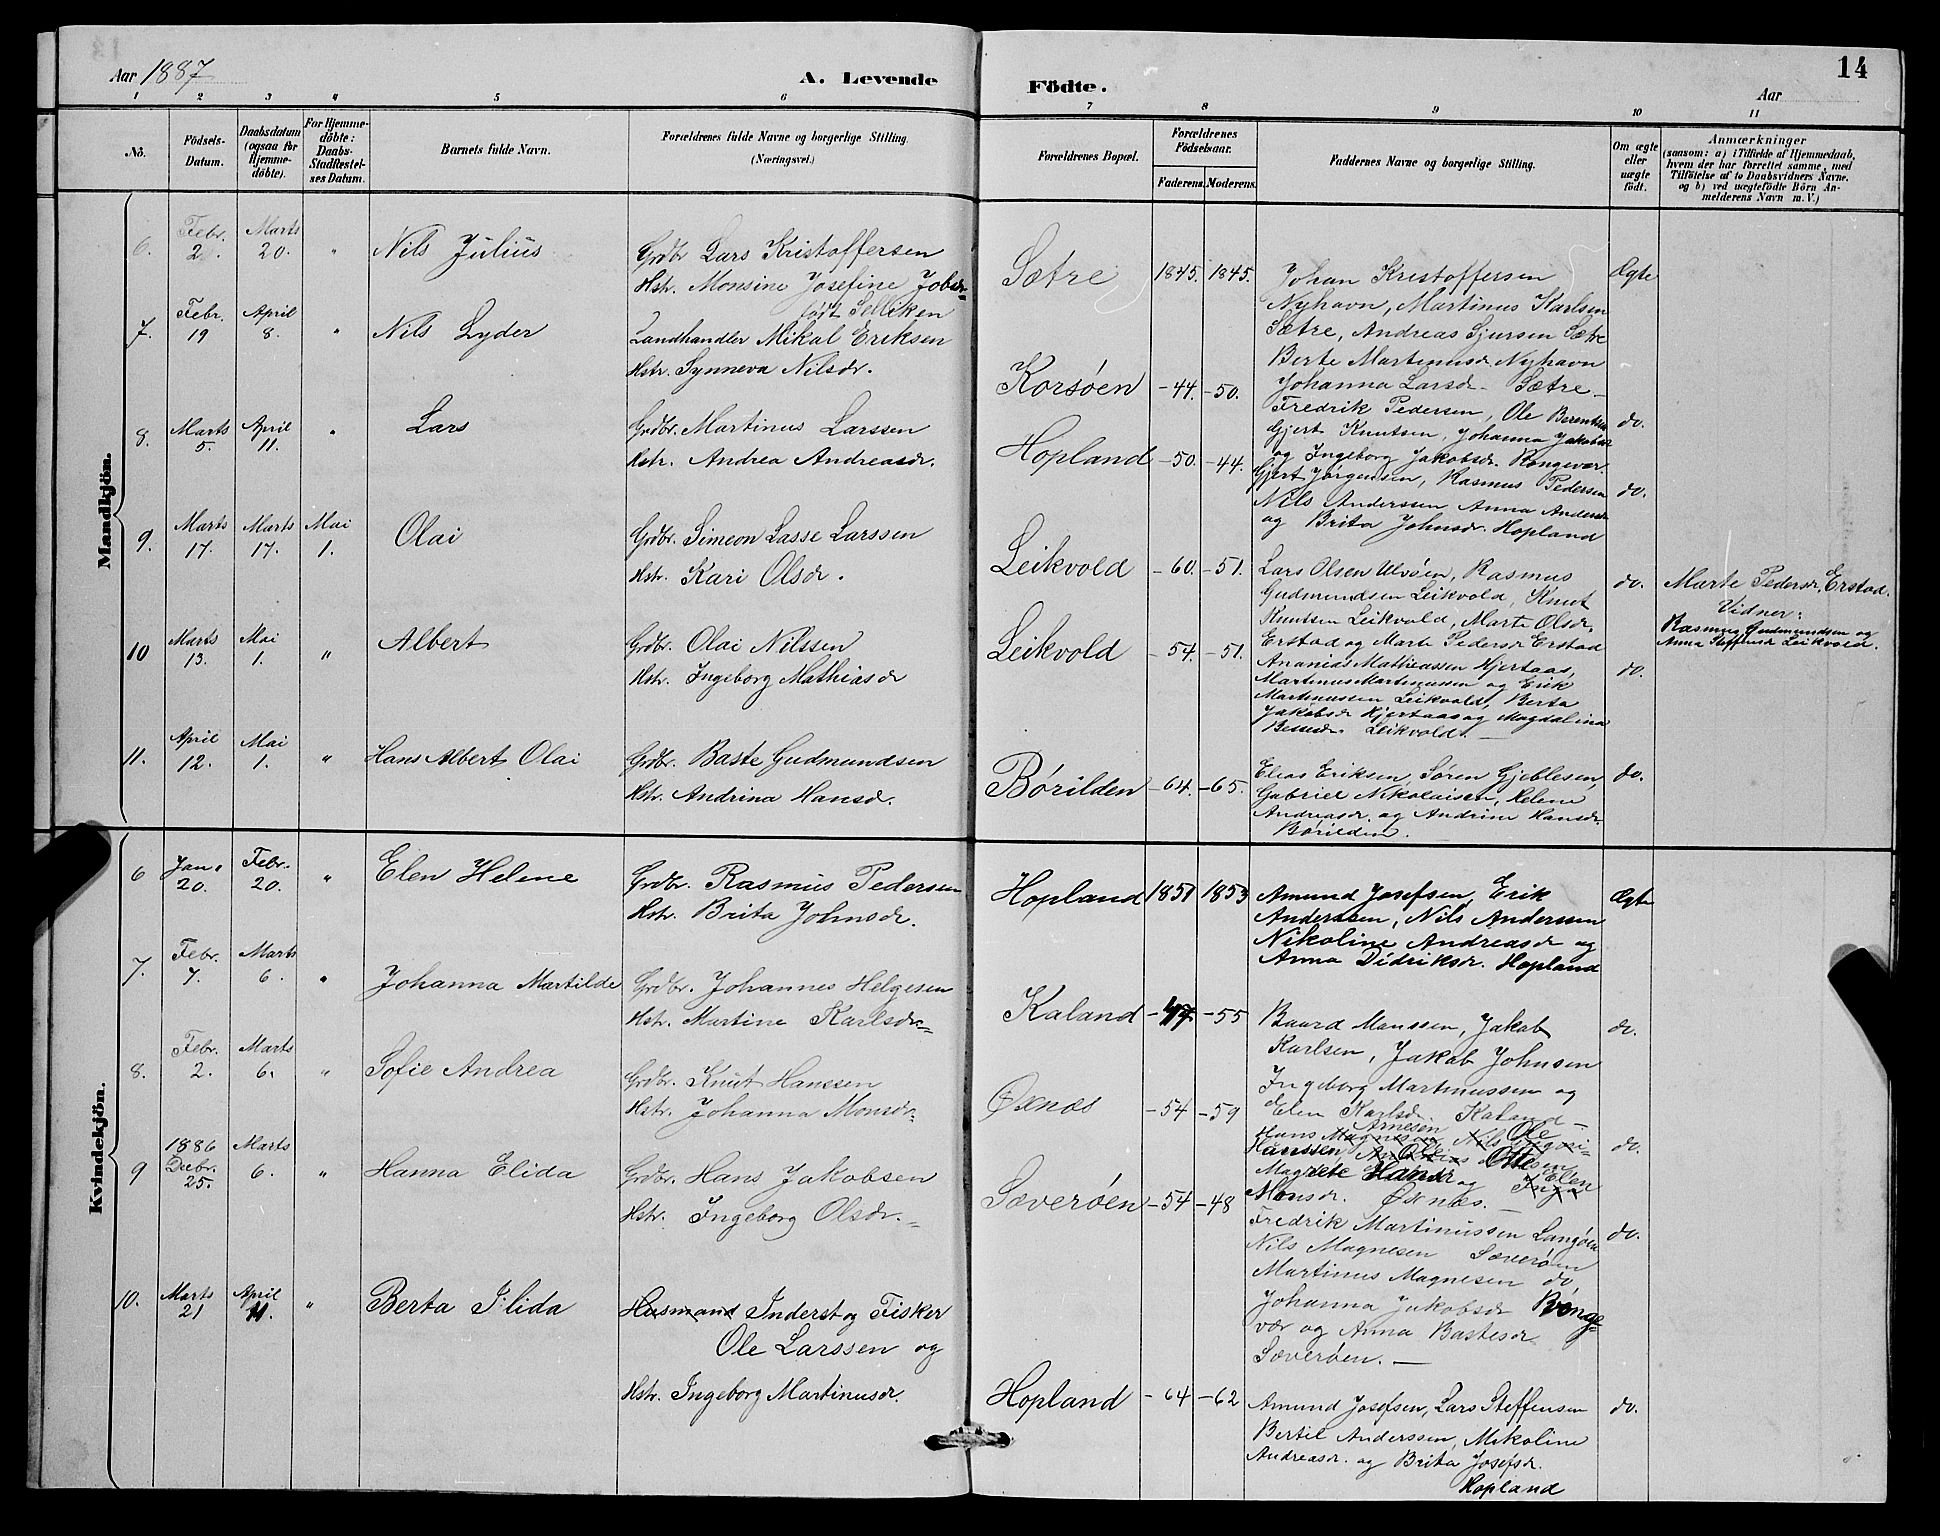 Aar 1887
A. Levende
Födte.
14
Aar
1 2 3 4 5 6 7 8 9 10 11
No.
Födsels-
Datum.
Daabsdatum
(ogsaa for
Hjemme-
döbte).
For Hjemme-
döbte:
Daabs-
Stadfæstel-
ses Datum.
Barnets fulde Navn.
Forældrenes fulde Navne og borgerlige Stilling.
(Næringsvei.)
Forældrenes Bopæl.
Forældrenes
Födselsaar.
Faderens. Moderens.
Faddernes Navne og borgerlige Stilling.
Om ægte
eller
uægte
født.
Anmærkninger
(saasom: a) i Tilfælde af Hjemmedaab,
hvem der har forrettet samme, med
Tilføielse af to Daabsvidners Navne.
og b) ved uægtefödte Börn An-
melderens Navn m. V.)
Mandkjön.
6. Febr. 2. Marts 20. " Nils Julius
Grdbr Lars Kristoffersen
Hstr. Monsine Josefine Jobsdr.
født Selliken
Sætre 1845. 1845.
Johan Kristoffersen
Nyhavn, Martinus Karlsen
Sætre, Andreas Sjursen Sætre
Berte Martinusdr Nyhavn
Johanna Larsdr. Sætre
Ægte
7. Febr. 19 April 8. " Nils Lyder
Landhandler Mikal Eriksen
Hstr. Synneva Nilsdr.
Korsøen -44. -50.
Fredrik Pedersen, Ole Berentsen
Gjert Knutsen, Johanna Jakobsdr
og Ingeborg Jakobsdr. Rongevær.
do.
8. Marts 5. April 11. " Lars
Grdbr. Martinus Larssen
Hstr. Andrea Andreasdr.
Hopland -50. -44.
Gjert Jørgensen, Rasmus Pedersen
Nils Anderssen Anna Andersdr
og Brita Johnsdr. Hopland
do.
9. Marts 17. Marts 17. Mai 1. Olai
Grdbr. Simeon Lasse Larssen
Hstr. Kari Olsdr.
Leikvold -60. -51.
Lars Olsen Ulvøen, Rasmus
Gudmundsen Leikvold, Knut
Knutsen Leikvold, Marte Olsdr.
Erstad og Marte Pedersdr Erstad
do.
Marte Pedersdr, Erstad.
Vidner:
Rasmus Gudmundsen og
Anna Steffensdr Leikvold.
10 Marts 13. Mai 1. " Albert
Grdbr. Olai Nilssen
Hstr. Ingeborg Mathiasdr
Leikvold -54. -51.
Ananias Mathiassen Hjertaas,
Martinus Martinussen og Erik
Martinussen Leikvold, Berta
Jakobsdr Hjertaas og Magdalina
Leikvold.
do.
11. April 12. Mai 1. " Hans Albert Olai
Grdbr. Baste Gudmundsen
Hstr. Andrina Hansdr.
Børilden -64. -65.
Elias Eriksen, Søren Gjeblesen,
Gabriel Nikolaisen, Helene
Andreasdr. og Andrine Hansdr.
Børilden.
do.
Kvindekjön.
6 Jan. 20. Febr. 20. " Elen Helene
Grdbr. Rasmus Pedersen
Hstr. Brita Johnsdr.
Hopland 1851 1853
Amund Josefsen, Erik
Anderssen, Nils Anderssen
Nikoline Andreasdr og
Anna Didriksdr. Hopland
Ægte
7. Febr. 7. Marts 6. " Johanna Martilde
Grdbr. Johannes Helgesen
Hstr. Martine Karlsdr.
Kaland -47 -55
Baard Monssen, Jakob
Karlsen, Jakob Johnsen
Ingeborg Martinussen og
Elen Karlsdr. Kaland
do.
8. Febr. 2. Marts 6. " Sofie Andrea
Grdbr. Knut Hanssen
Hstr. Johanna Monsdr.
Øxnæs -54 -59
Arnesen Ole
Hans Magnesen Nils
Hanssen, Ole Ottesen
Magrete Hansdr og Elen Inga
Monsdr. Øxnæs.
do.
9 1886 Decbr. 25. Marts 6. " Hanna Elida
Grdbr. Hans Jakobsen
Hstr. Ingeborg Olsdr.
Sæverøen -54 -48
Fredrik Martinussen Langøen
Nils Magnesen Sæverøen
Martinus Magnesen do
Johanna Jakobsdr Rønge-
vær og Anna Bastesdr
Sæverøen.
do.
10. Marts 21 April 11. " Berta Ilida
Husmand Inderst og Fisker
Ole Larssen og
Hstr. Ingeborg Martinusdr.
Hopland -64 -62
Amund Josefsen, Lars Steffensen
Bertil Anderssen, Nikoline
Andreasdr. og Brita Josefsdr.
Hopland
do.